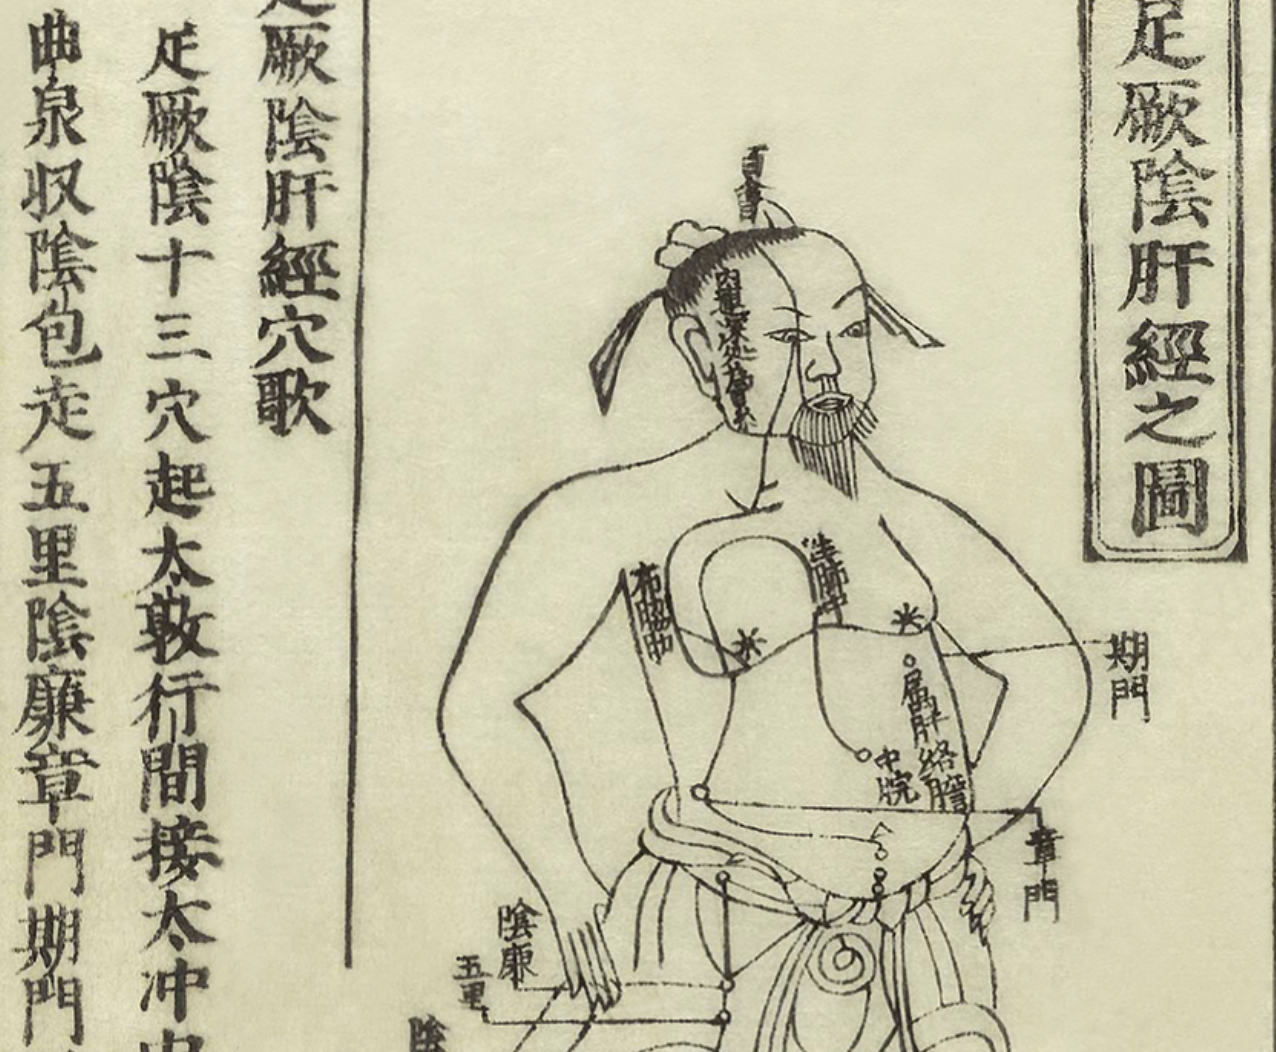 足厥陰肝經之圖
百會
期門
章門
屬肝絡膽
中脘
布脇肋
陰廉
五里
陰
足厥陰肝經穴歌
足厥陰十三穴起太敦行間接太冲中
曲泉収陰包走五里陰廉章門期門